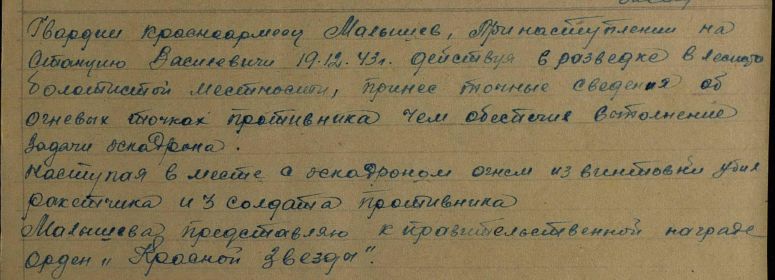 Гвардии красноармеец Малышев, При наступлении на
Станцию Василевичи 19.12.43г. действуя в разведке в лесисто
болотистой местности, принес точные сведения об
огневых точках противника чем обеспечил выполнение
задачи эскадрона.
Наступая в месте с эскадроном огнем из винтовки убил
ракетчика и 3 солдата противника
Малышева представляю к правительственной награде
орден „Красной Звезды".